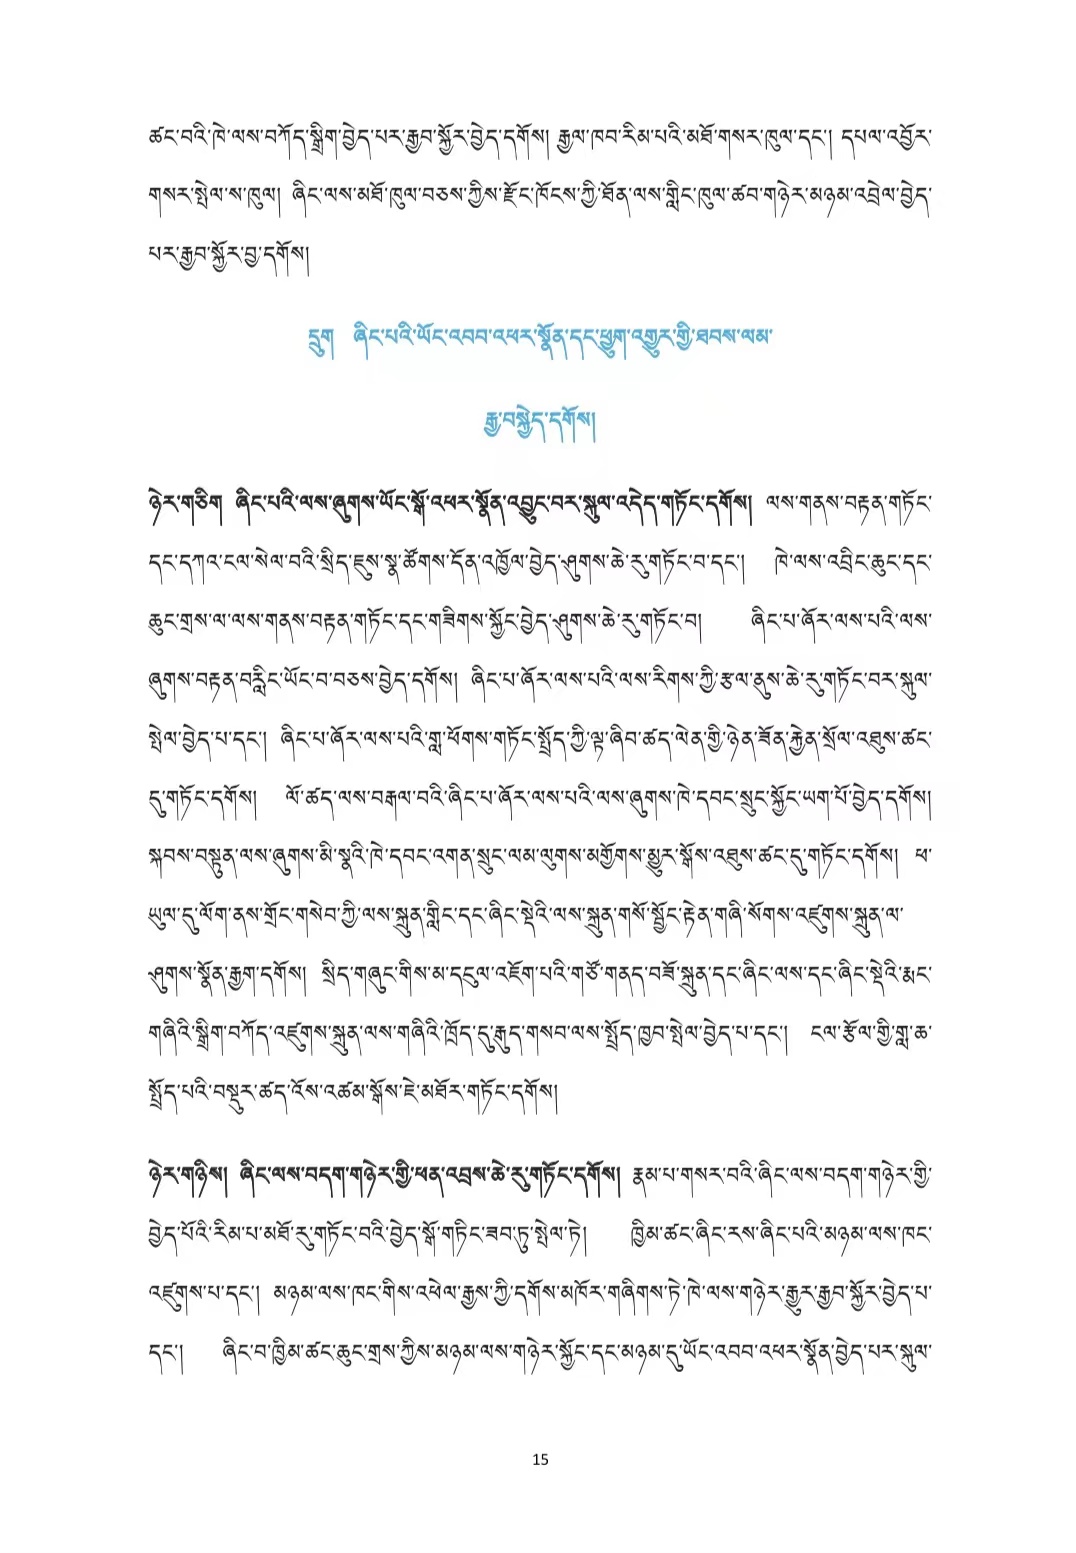 ཚང་བའི་ཁེ་ལས་བཀོད་སྒྲིག་བྱེད་པར་རྒྱབ་སྐྱོར་བྱེད་དགོས། རྒྱལ་ཁབ་རིམ་པའི་མཐོ་གསར་ཁུལ་དང་། དཔལ་འབྱོར་
གསར་སྤེལ་ས་ཁུལ། ཞིང་ལས་མཐོ་ཁུལ་བཅས་ཀྱིས་རྫོང་ཁོངས་ཀྱི་ཐོན་ལས་གླིང་ཁུལ་ཚབ་གཉེར་མཉམ་འབྲེལ་བྱེད་
པར་རྒྱབ་སྐྱོར་བྱ་དགོས།
དྲུག ཞིང་པའི་ཡོང་འབབ་འཕར་སྣོན་དང་ཕྱུག་འགྱུར་གྱི་ཐབས་ལམ་
རྒྱ་བསྐྱེད་དགོས།
ཉེར་གཅིག ཞིང་པའི་ལས་ཞུགས་ཡོང་སྒོ་འཕར་སྣོན་འབྱུང་བར་སྐུལ་འདེད་གཏོང་དགོས། ལས་གནས་བརྟན་གཏོང་
དང་དཀའ་ངལ་སེལ་བའི་སྲིད་ཇུས་སྣ་ཚོགས་དོན་འཁྱོལ་བྱེད་ཤུགས་ཆེ་རུ་གཏོང་བ་དང་། ཁེ་ལས་འབྲིང་ཆུང་དང་
ཆུང་གྲས་ལ་ལས་གནས་བརྟན་གཏོང་དང་གཟིགས་སྐྱོང་བྱེད་ཤུགས་ཆེ་རུ་གཏོང་བ། ཞིང་པ་ཞོར་ལས་པའི་ལས་
ཞུགས་བརྟན་བརླིང་ཡོང་བ་བཅས་བྱེད་དགོས། ཞིང་པ་ཞོར་ལས་པའི་ལས་རིགས་ཀྱི་རྩལ་ནུས་ཆེ་རུ་གཏོང་བར་སྐུལ་
སྤེལ་བྱེད་པ་དང་། ཞིང་པ་ཞོར་ལས་པའི་གླ་ཕོགས་གཏོང་སྤྲོད་ཀྱི་ལྟ་ཞིབ་ཚད་ལེན་གྱི་ཉེན་ཟོན་རྐྱེན་སྲོལ་འཐུས་ཚང་
དུ་གཏོང་དགོས། ལོ་ཚད་ལས་བརྒལ་བའི་ཞིང་པ་ཞོར་ལས་པའི་ལས་ཞུགས་ཁེ་དབང་སྲུང་སྐྱོང་ཡག་པོ་བྱེད་དགོས།
སྐབས་བསྟུན་ལས་ཞུགས་མི་སྣའི་ཁེ་དབང་འགན་སྲུང་ལམ་ལུགས་མགྱོགས་མྱུར་སྒོས་འཐུས་ཚང་དུ་གཏོང་དགོས། ཕ་
ཡུལ་དུ་ལོག་ནས་གྲོང་གསེབ་ཀྱི་ལས་སྐྲུན་གླིང་དང་ཞིང་སྡེའི་ལས་སྐྲུན་གསོ་སྦྱོང་རྟེན་གཞི་སོགས་འཛུགས་སྐྲུན་ལ་
ཤུགས་སྣོན་རྒྱག་དགོས། སྲིད་གཞུང་གིས་མ་དངུལ་འཇོག་པའི་གཙོ་གནད་བཟོ་སྐྲུན་དང་ཞིང་ལས་དང་ཞིང་སྡེའི་རྨང་
གཞིའི་སྒྲིག་བཀོད་འཛུགས་སྐྲུན་ལས་གཞིའི་ཁྲོད་དུ་རྒུད་གསབ་ལས་སྤྲོད་ཁྱབ་སྤེལ་བྱེད་པ་དང་། ངལ་རྩོལ་གྱི་གླ་ཆ་
སྤྲོད་པའི་བསྡུར་ཚད་འོས་འཚམ་སྒོས་ཇེ་མཐོར་གཏོང་དགོས།
ཉེར་གཉིས། ཞིང་ལས་བདག་གཉེར་གྱི་ཕན་འབྲས་ཆེ་རུ་གཏོང་དགོས། རྣམ་པ་གསར་བའི་ཞིང་ལས་བདག་གཉེར་གྱི་
བྱེད་པོའི་རིམ་པ་མཐོ་རུ་གཏོང་བའི་བྱེད་སྒོ་གཏིང་ཟབ་ཏུ་སྤེལ་ཏེ། ཁྱིམ་ཚང་ཞིང་རས་ཞིང་པའི་མཉམ་ལས་ཁང་
འཛུགས་པ་དང་། མཉམ་ལས་ཁང་གིས་འཕེལ་རྒྱས་ཀྱི་དགོས་མཁོར་གཞིགས་ཏེ་ཁེ་ལས་གཉེར་རྒྱུར་རྒྱབ་སྐྱོར་བྱེད་པ་
དང་། ཞིང་བ་ཁྱིམ་ཚང་ཆུང་གྲས་ཀྱིས་མཉམ་ལས་གཉེར་སྐྱོང་དང་མཉམ་དུ་ཡོང་འབབ་འཕར་སྣོན་བྱེད་པར་སྐུལ་
15